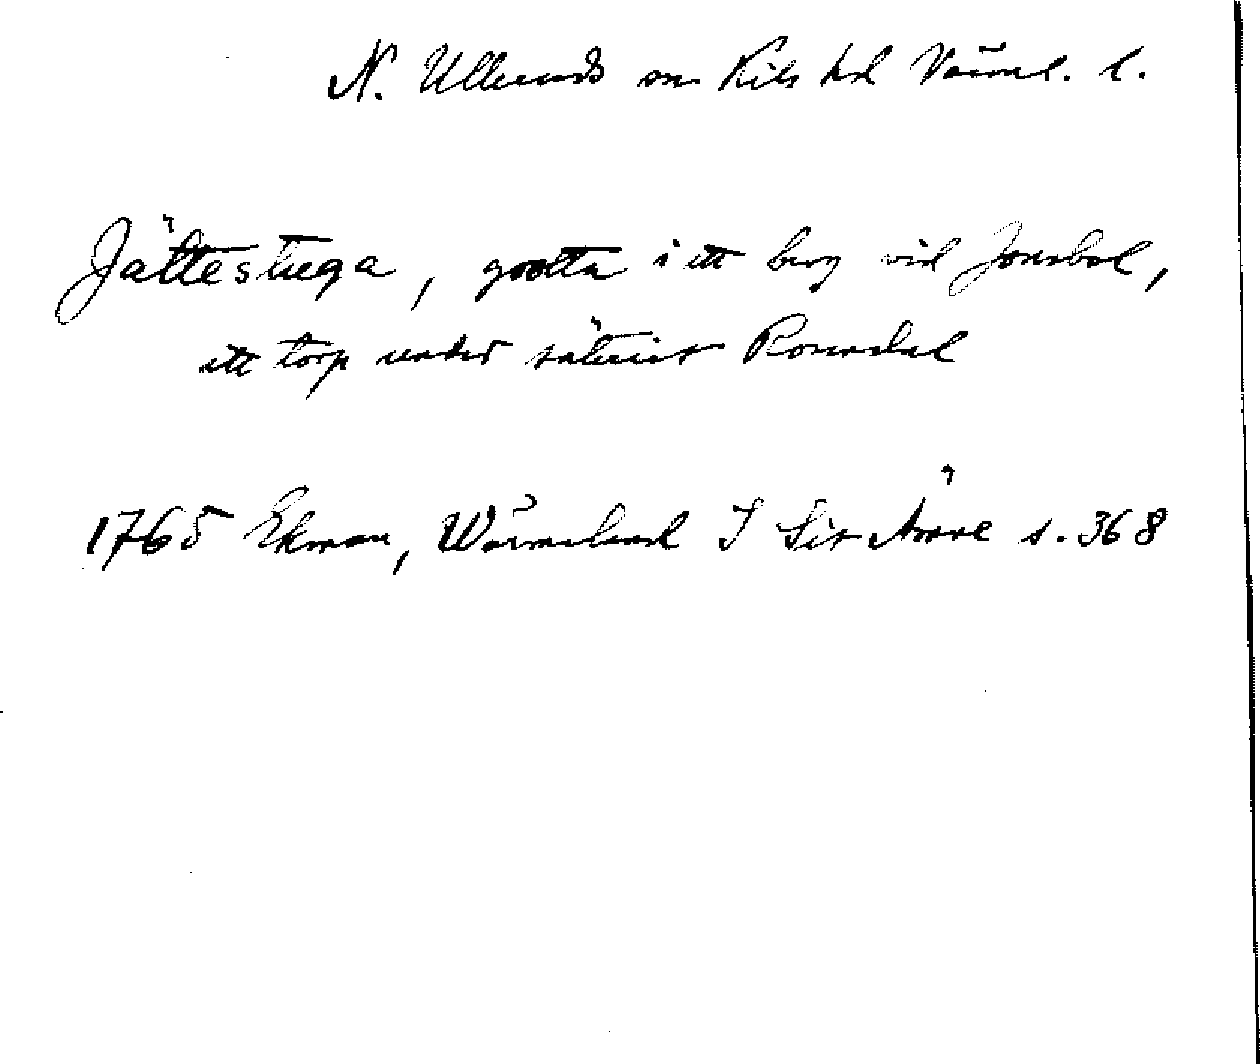 N. Ulleruds sn Kils hd Värml. l.
Jättestuga, grotta i ett berg vid Jonsbol,
ett torp under säteriet Rosendal
1765 Ekman, Wärmeland I Sit s. 368